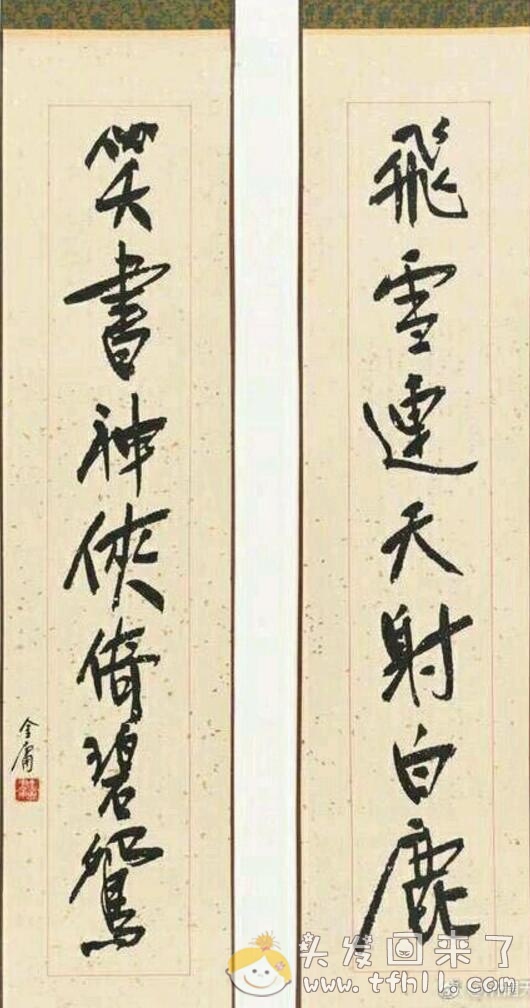 飛雪連天射白鹿
笑書神俠倚碧鴛
金庸
头发回来了
www.tfhll.com